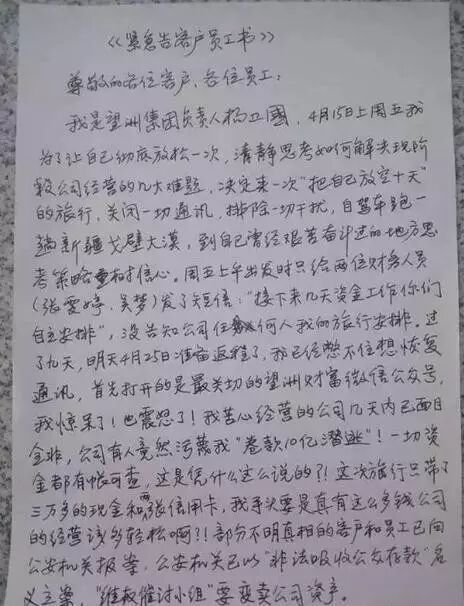 《紧急告客户员工书》
尊敬的各位客户、各位员工:
我是望洲集团负责人杨卫国,4月15日上周五我
为了让自己彻底放松一次,清静思考如何解决现阶
段公司经营的几大难题,决定来一次“把自己放空十天”
的旅行,关闭一切通讯,排除一切干扰,自驾车跑一
趟新疆戈壁大漠,到自己曾经艰苦奋斗过的地方思
考策略重树信心。周五上午出发时只给两位财务人员
(张雯婷、吴梦)发了短信:“接下来几天资金工作你们
自主安排”,没告知公司任何人我的旅行安排。过
了九天,明天4月25日准备返程了,我已经憋不住想恢复
通讯,首先打开的是最关切的望洲财富微信公众号,
我惊呆了!也震怒了!我苦心经营的公司几天内已面目
全非,公司有人竟然污蔑我“卷款10亿潜逃”!一切资
金都有帐可查,这是凭什么这么说的?!这次旅行只带了
三万多的现金和两张信用卡,我手头要是真有这么多钱公司
的经营该多轻松啊?!部分不明真相的客户和员工已向
公安机关报案,公安机关已以“非法吸收公众存款”名
义立案,“维权催讨小组”要变卖公司资产。